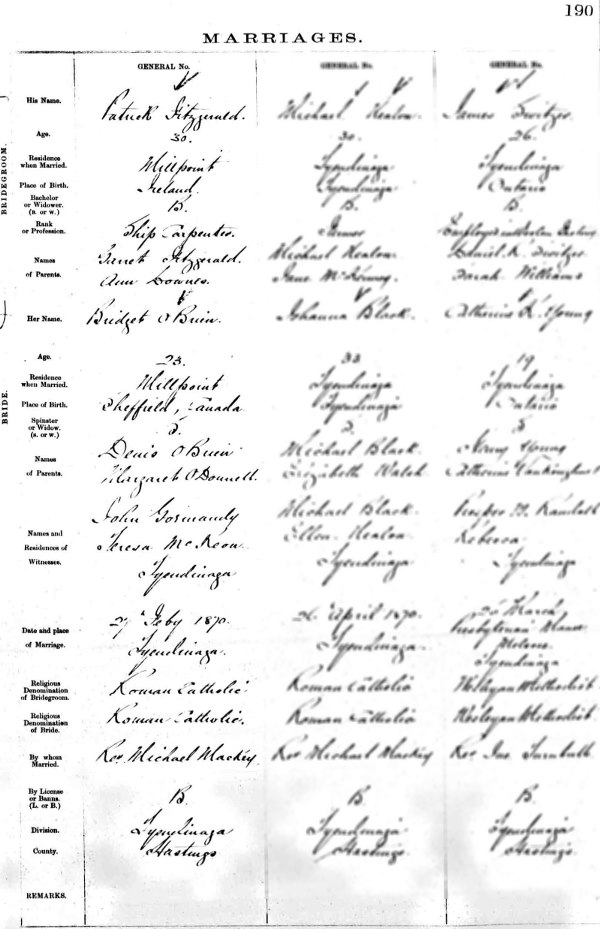 190
MARRIAGES.
GENERAL No.
GENERAL No.
GENERAL No.
BRIDEGROOM.
His Name.
Patrick Fitzgerald.
Michael
James Switzer
Age.
30.
30.
26.
Residence
when Married.
Millpoint
Tyendinaga
Tyendinaga
Place of Birth.
Ireland.
Tyendinaga
Ontario
Bachelor
or Widower.
(B. or W.)
B.
B.
B.
Rank
or Profession.
Ship Carpenter.
Farmer
Names
of Parents.
Garrot Fitzgerald.
Michael
Daniel K. Switzer
Ann Downes.
Jane
Sarah Williams
BRIDE.
Her Name.
Bridget O'Brien.
Johanna Black.
Catherine K. Young
Age.
23.
33
19
Residence
when Married.
Millpoint
Tyendinaga
Tyendinaga
Place of Birth.
Sheffield, Canada
Tyendinaga
Ontario
Spinster
or Widow.
(S. or W.)
S.
S.
S
Names
of Parents.
Denis O'Brien
Michael Black.
Young
Margaret O'Donnell.
Elizabeth Walsh
Catherine
Names and
Residences of
Witnesses.
John Gormandy
Michael Black.
Teresa McKeon
Ellen
Rebecca
Tyendinaga
Tyendinaga
Tyendinaga
Date and place
of Marriage.
27 Feby 1870.
26 April 1870.
March
Tyendinaga.
Tyendinaga.
Presbyterian Manse
Melrose
Tyendinaga
Religious
Denomination
of Bridegroom.
Roman Catholic
Roman Catholic
Wesleyan Methodist
Religious
Denomination
of Bride.
Roman Catholic.
Roman Catholic
Wesleyan Methodist
By whom
Married.
Rev. Michael Mackey.
Rev Michael Mackey
Rev Jno Turnbull
By License
or Banns.
(L. or B.)
B.
B.
B.
Division.
Tyendinaga
Tyendinaga
Tyendinaga
County.
Hastings
Hastings
Hastings
REMARKS.